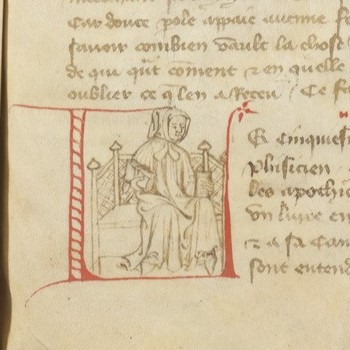 Car douce pole appaie aucune fe
sauoir combien vault la chose
de qui q̄ut coment ⁊ en quelle
oublier ce q̄ len a Receu / Ce s
Le Cinquies
phisicien
les apothic
vn liure en
⁊ a sa Cain
sont entend